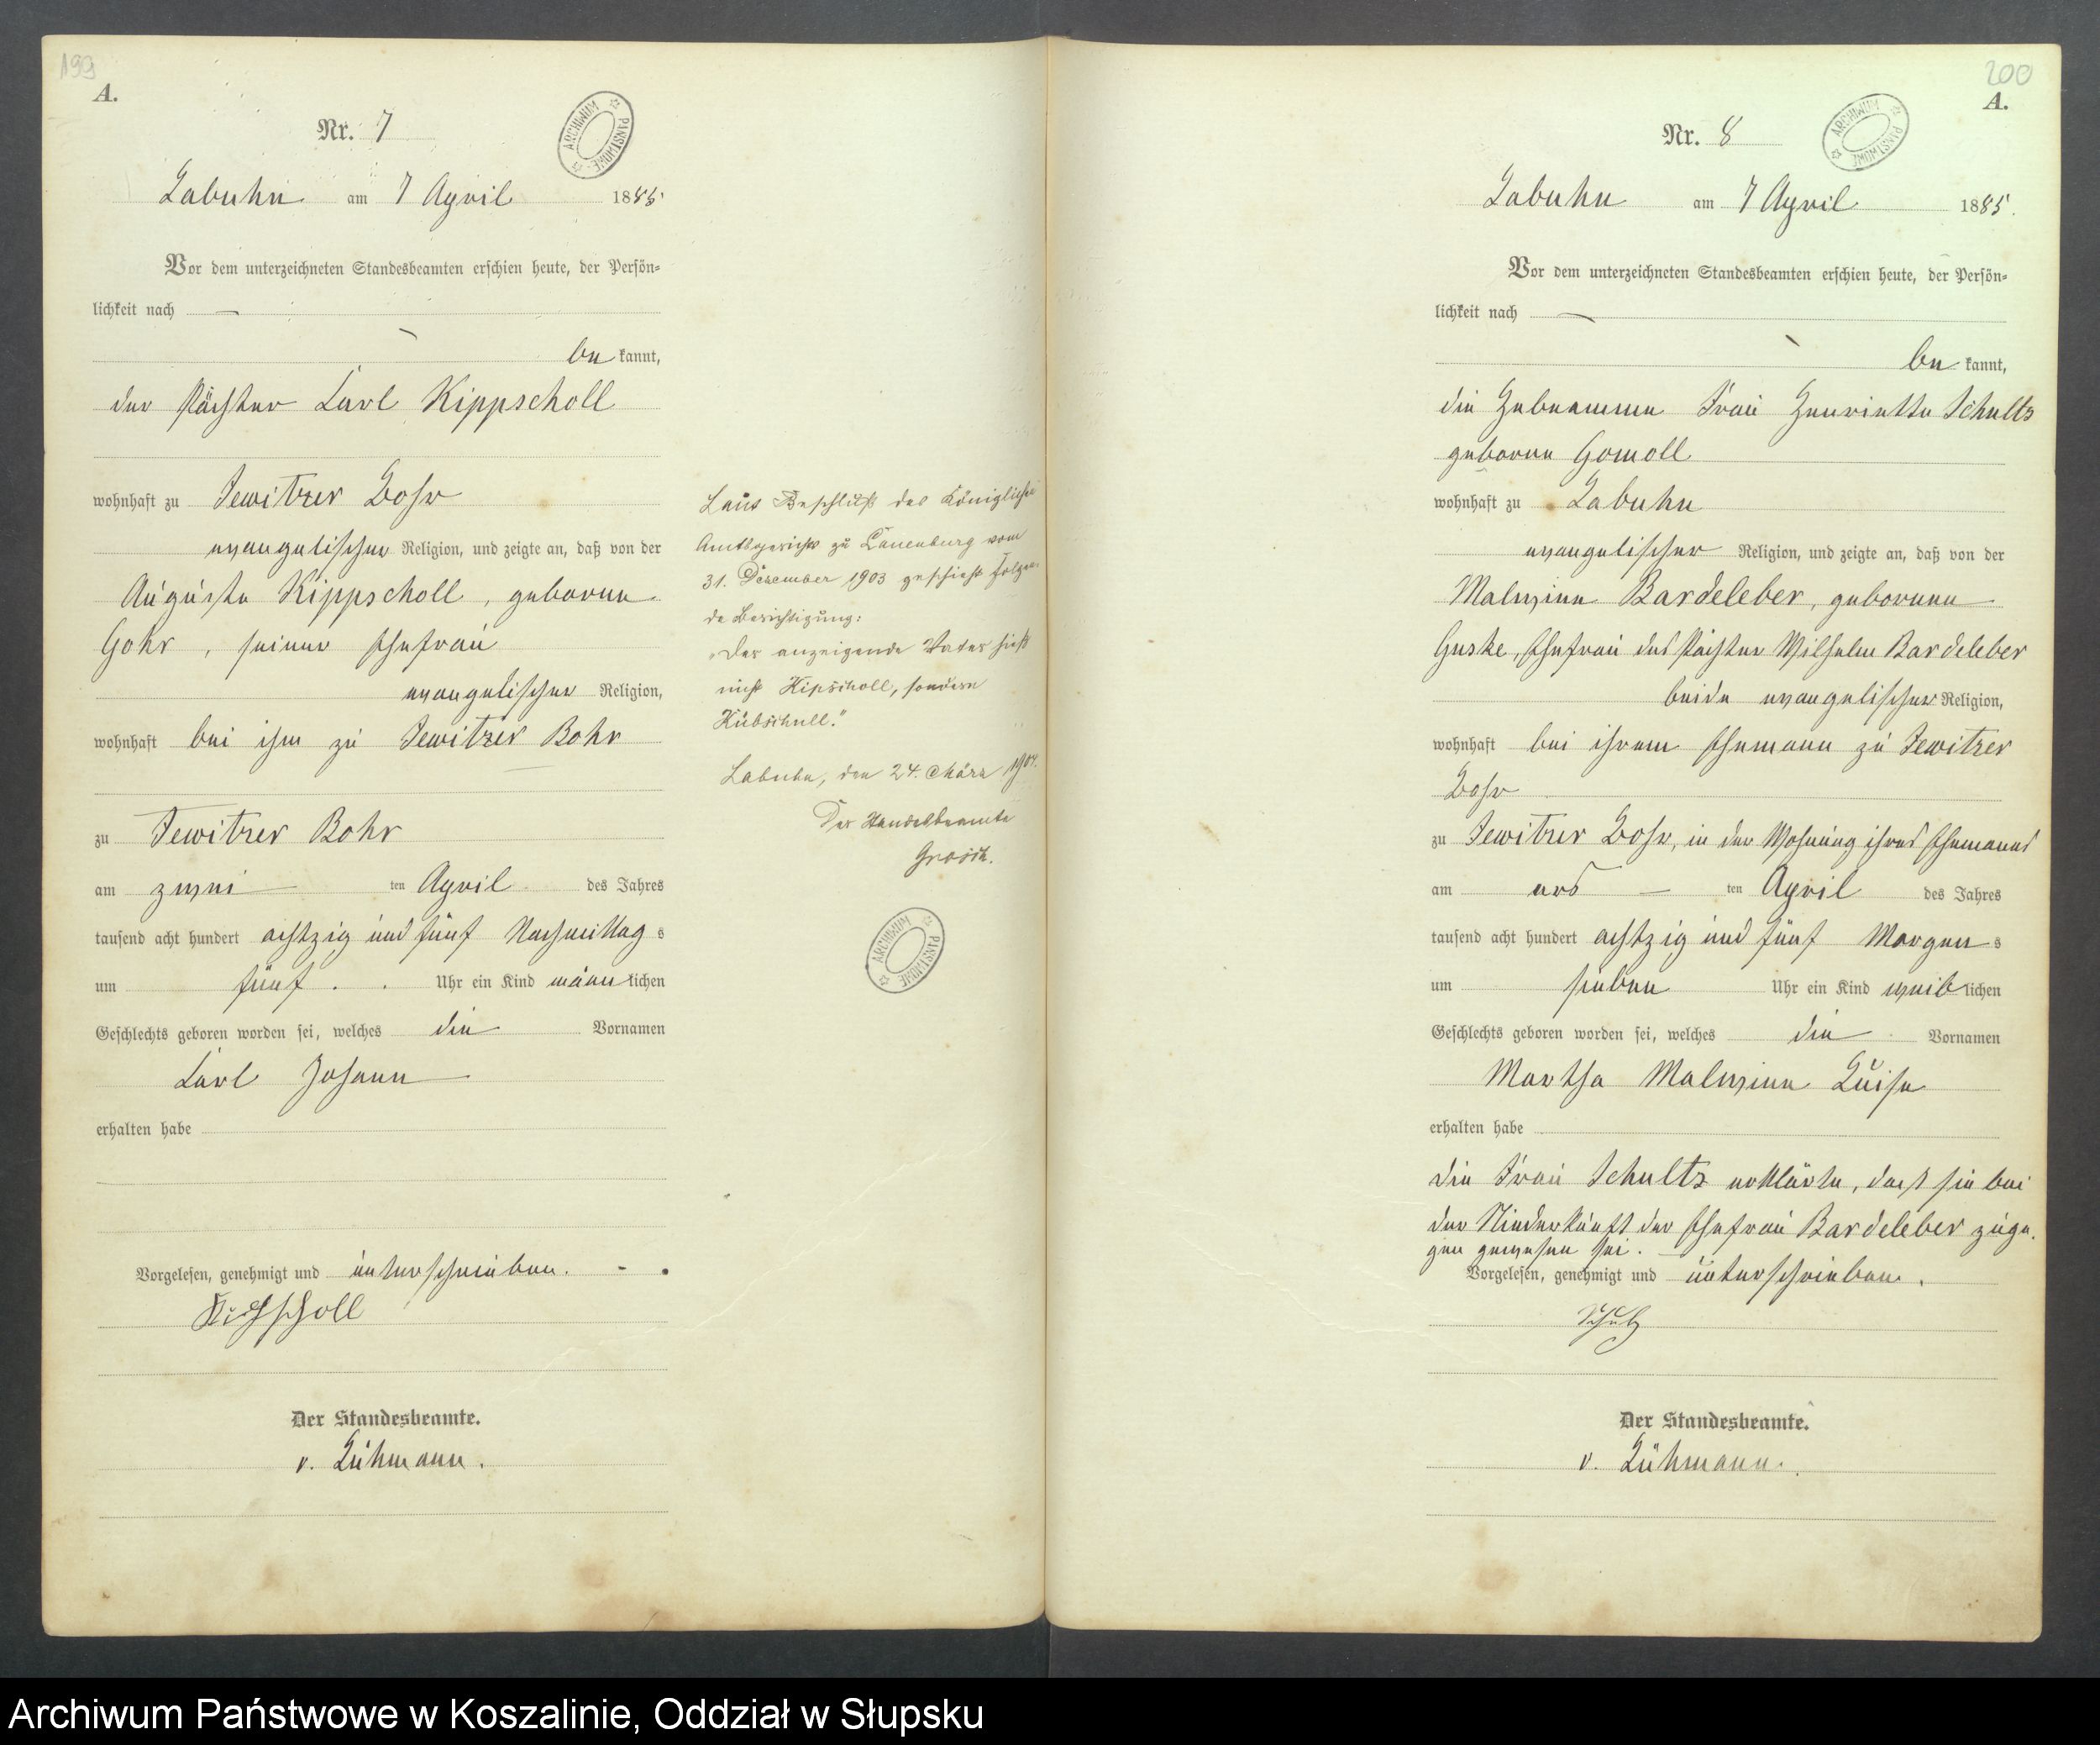 199
A.
Nr. 7
ARCHIWUM PAŃSTWOWE
Labuhn am 7 April 1885
Vor dem unterzeichneten Standesbeamten erschien heute, der Persön-
lichkeit nach —
be kannt,
der Pächter Carl Kippscholl
wohnhaft zu Jewitzer Bohr
evangelischer Religion, und zeigte an, daß von der
Auguste Kippscholl, geborene
Gohr, seiner Ehefrau
evangelischer Religion,
wohnhaft bei ihm zu Jewitzer Bohr
zu Jewitzer Bohr
am zwei ten April des Jahres
tausend acht hundert achtzig und fünf Nachmittag s
um fünf Uhr ein Kind männ lichen
Geschlechts geboren worden sei, welches die Vornamen
Carl Johann
erhalten habe
Vorgelesen, genehmigt und unterschrieben.
Der Standesbeamte.
v. Lühmann.
Laut Beschluß des Königlichen
Amtsgerichts zu Lauenburg vom
31. Dezember 1903 geschieht folgen-
de Berichtigung:
„Der anzeigende Vater hieß
nicht Kipscholl, sondern
Kübschull."
Labuhn, den 24. März 1904.
Der Standesbeamte
Grosch.
ARCHIWUM PAŃSTWOWE
200
A.
Nr. 8
ARCHIWUM PAŃSTWOWE
Labuhn am 7 April 1885.
Vor dem unterzeichneten Standesbeamten erschien heute, der Persön-
lichkeit nach —
be kannt,
die Hebeamme Frau Henriette Schultz
geborene Gomoll
wohnhaft zu Labuhn
evangelischer Religion, und zeigte an, daß von der
Malwine Bardeleber, geborenen
Guske, Ehefrau des Pächter Wilhelm Bardeleber
beide evangelischer Religion,
wohnhaft bei ihrem Ehemann zu Jewitzer
Bohr
zu Jewitzer Bohr, in der Wohnung ihres Ehemannes
am ers ten April des Jahres
tausend acht hundert achtzig und fünf Morgen s
um sieben Uhr ein Kind weib lichen
Geschlechts geboren worden sei, welches die Vornamen
Martha Malwine Luise
erhalten habe
die Frau Schultz erklärte, dass sie bei
der Niederkunft der Ehefrau Bardeleber zuge-
gen gewesen sei.
Vorgelesen, genehmigt und unterschrieben.
Schulz
Der Standesbeamte.
v. Lühmann.
Archiwum Państwowe w Koszalinie, Oddział w Słupsku